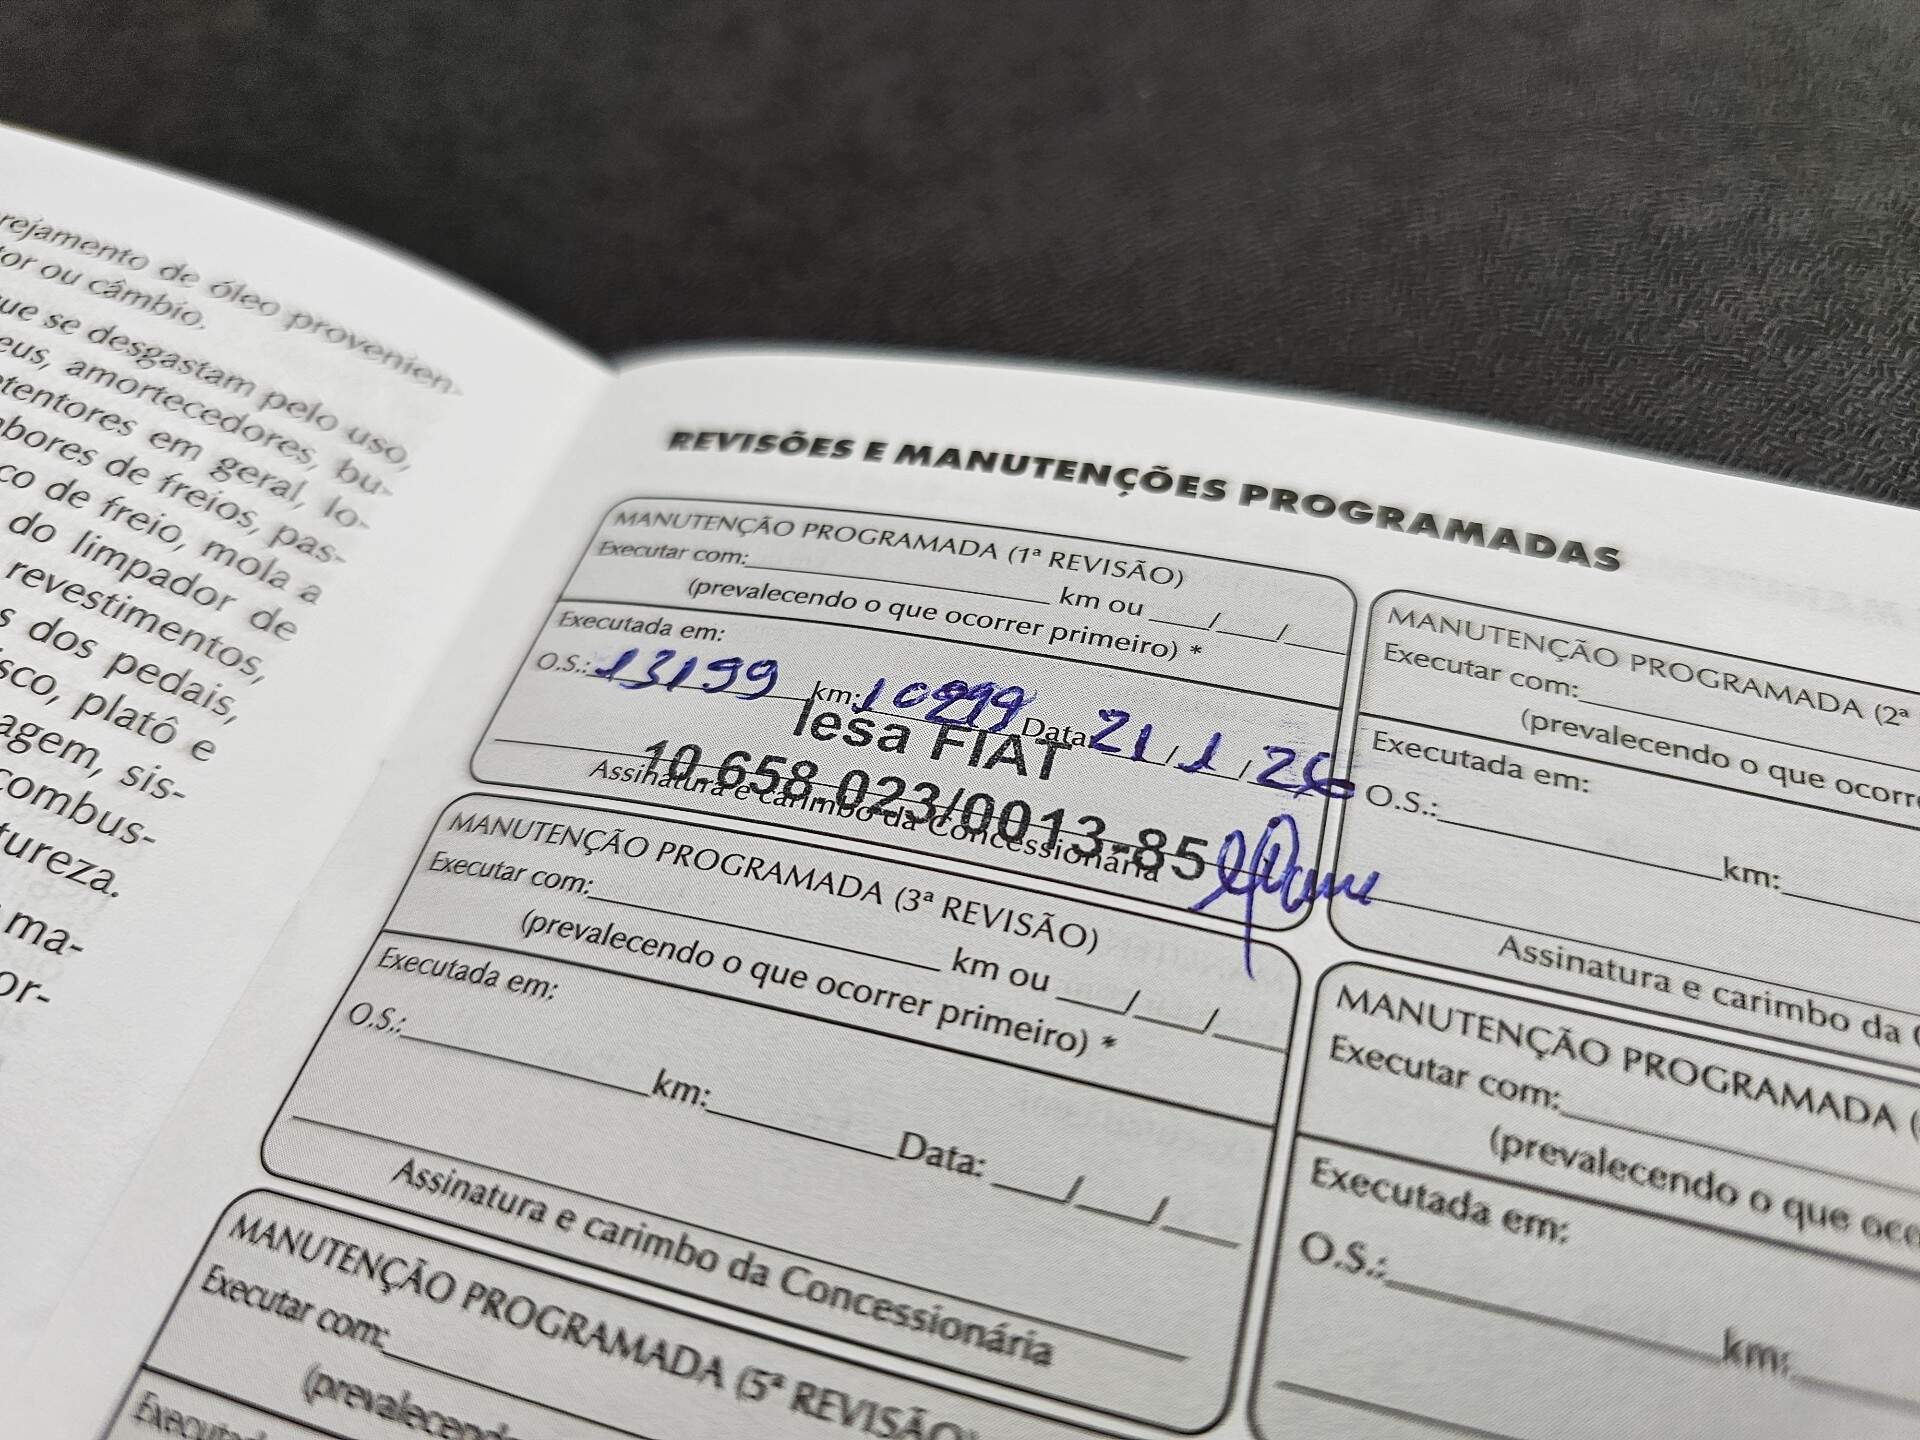 rejamento de óleo provenien-
tor ou câmbio.
ue se desgastam pelo uso,
eus, amortecedores, bu-
tentores em geral, lo-
bores de freios, pas-
co de freio, mola a
do limpador de
revestimentos,
s dos pedais,
sco, platô e
agem, sis-
combus-
tureza.
ma-
or-
REVISÕES E MANUTENÇÕES PROGRAMADAS
MANUTENÇÃO PROGRAMADA (1ª REVISÃO)
Executar com: km ou / /
(prevalecendo o que ocorrer primeiro) *
Executada em:
O.S.: 13199 km: 10299 Data 21/1/26
Iesa FIAT
10.658.023/0013-85
Assinatura e carimbo da Concessionária
MANUTENÇÃO PROGRAMADA (2ª
Executar com:
(prevalecendo o que ocorr
Executada em:
O.S.: km:
Assinatura e carimbo da
MANUTENÇÃO PROGRAMADA (3ª REVISÃO)
Executar com: km ou / /
(prevalecendo o que ocorrer primeiro) *
Executada em:
O.S.: km: Data: / /
Assinatura e carimbo da Concessionária
MANUTENÇÃO PROGRAMADA (
Executar com:
(prevalecendo o que oco
Executada em:
O.S.: km:
MANUTENÇÃO PROGRAMADA (5ª REVISÃO)
Executar com:
(prevalecend
Executad